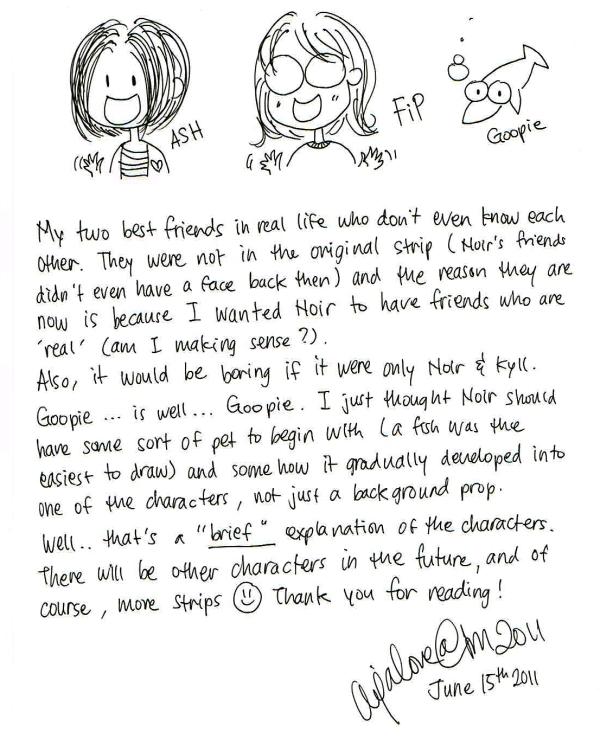 ASH
FiP
Goopie
My two best friends in real life who don't even know each
other. They were not in the original strip (Noir's friends
didn't even have a face back then) and the reason they are
now is because I wanted Noir to have friends who are
'real' (am I making sense?).
Also, it would be boring if it were only Noir & Kyll.
Goopie ... is well... Goopie. I just thought Noir should
have some sort of pet to begin with (a fish was the
easiest to draw) and some how it gradually developed into
one of the characters, not just a background prop.
Well.. that's a "brief" explanation of the characters.
There will be other characters in the future, and of
course, more strips ☺ Thank you for reading!
2011
June 15th 2011